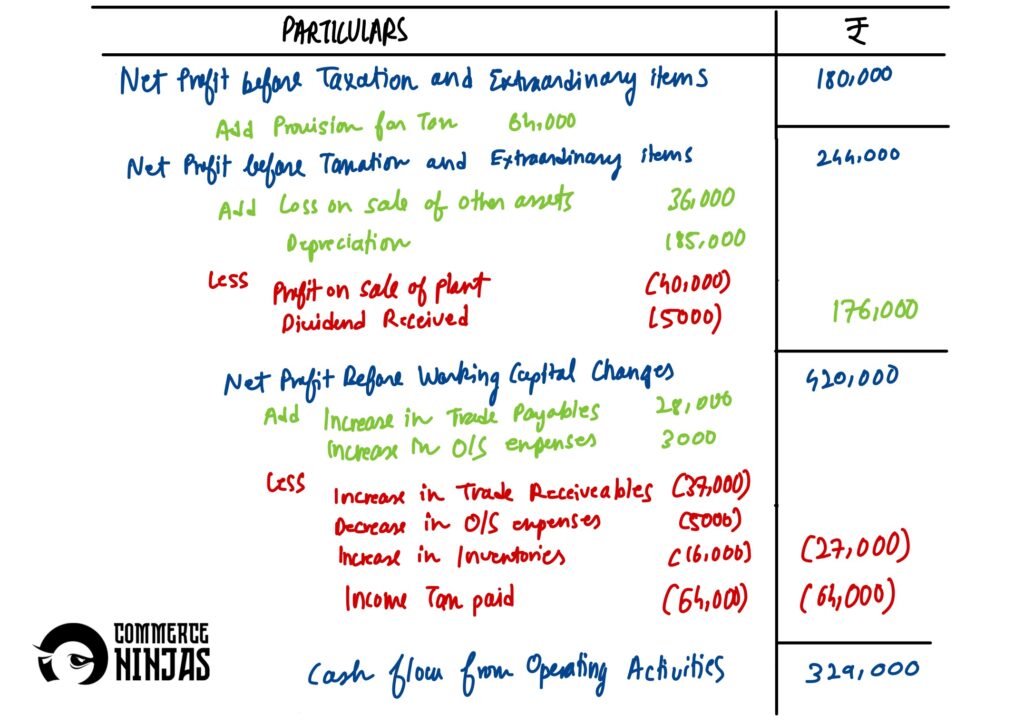 PARTICULARS ₹
Net Profit before Taxation and Extraordinary items 180,000
Add Provision for Tax 64,000
Net Profit before Taxation and Extraordinary items 244,000
Add Loss on sale of other assets 36,000
Depreciation 185,000
Less Profit on sale of plant (40,000)
Dividend Received (5000) 176,000
Net Profit Before Working Capital Changes 420,000
Add Increase in Trade Payables 28,000
Increase in O/S expenses 3000
Less Increase in Trade Receiveables (37,000)
Decrease in O/S expenses (5000)
Increase in Inventories (16,000) (27,000)
Income Tax paid (64,000) (64,000)
Cash flow from Operating Activities 329,000
COMMERCE
NINJAS